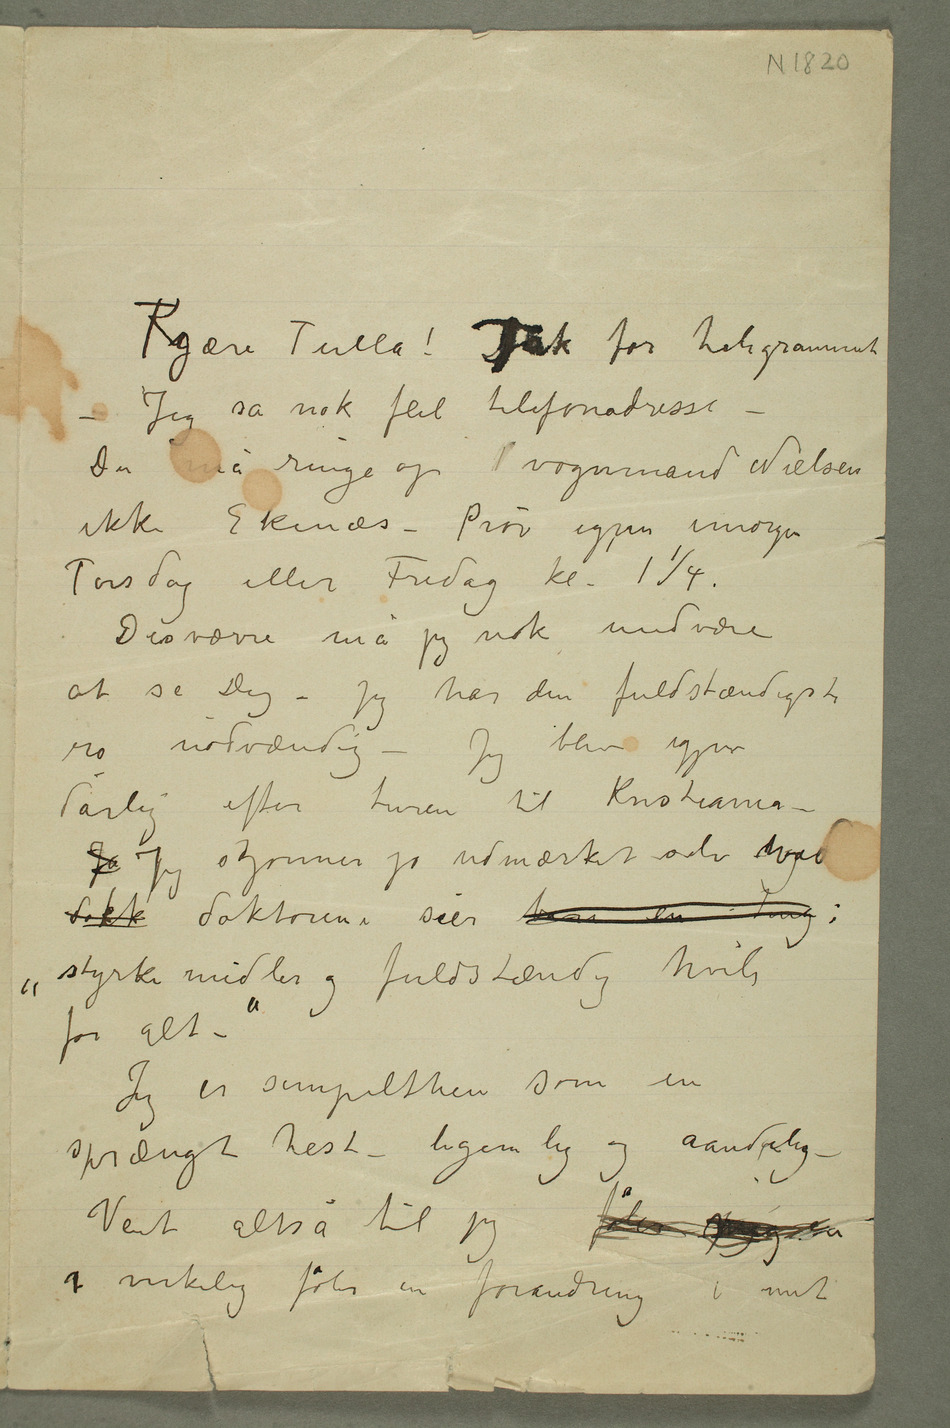 N 1820
Kjære Tulla! Tak for telegrammet
– Jeg sa nok feil telefonadresse –
Du må ringe op vognmand Nielsen
ikke Ekenæs – Prøv igjen imorgen
Torsdag eller Fredag kl. 1 1/4.
Desværre må jeg nok undvære
at se Dig – jeg har den fuldstændigste
ro nødvændig – Jeg blev igjen
dårlig efter turen til Kristiania –
Ja Jeg skjønner jo udmærket selv hvad
dokk doktorene sier bare en ting:
„styrkemidler og fuldstændig hvile
for alt –"
Jeg er simpelthen som en
sprængt hest – legemlig og aandelig –
Vent altså til jeg føler mig en
virkelig føler en forandring i mit